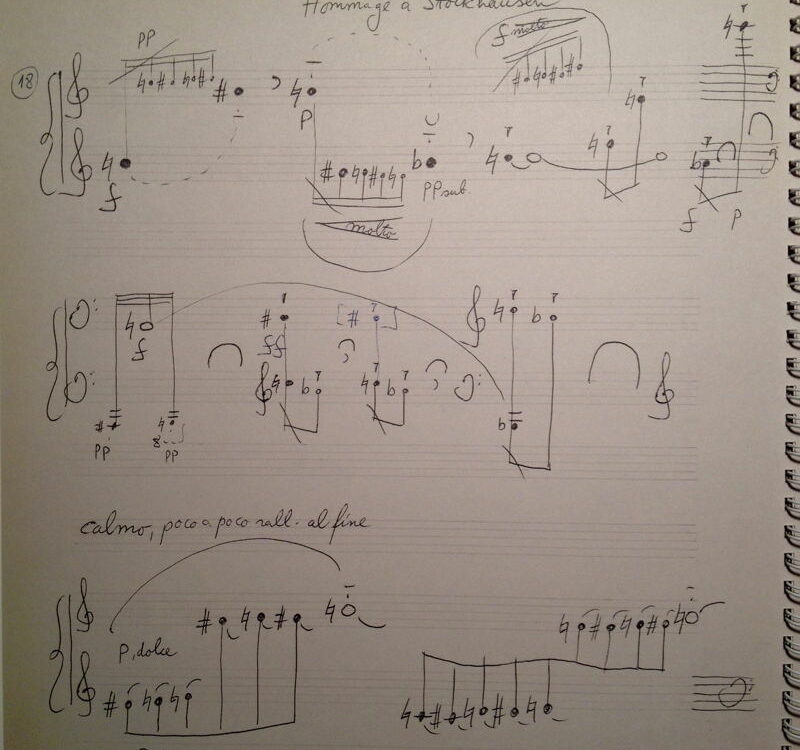 Hommage à Stockhausen
pp
f molto
18
p
f
pp sub.
molto
f p
f
ff
pp
8
pp
calmo, poco a poco rall. al fine
p, dolce